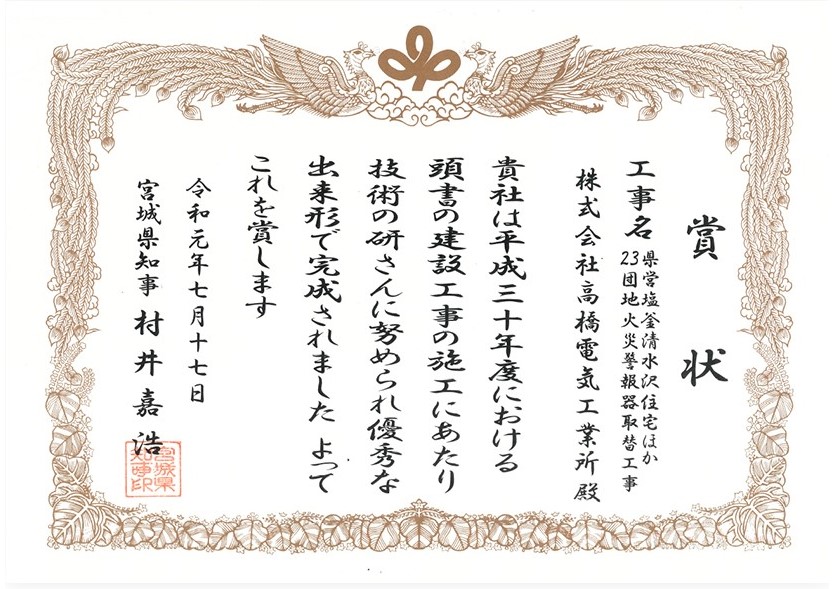 賞状
工事名 県営塩釜清水沢住宅ほか
23団地火災警報器取替工事
株式会社高橋電気工業所 殿
貴社は平成三十年度における
頭書の建設工事の施工にあたり
技術の研さんに努められ優秀な
出来形で完成されました よって
これを賞します
令和元年七月十七日
宮城県知事 村井嘉浩
宮城県
知事印